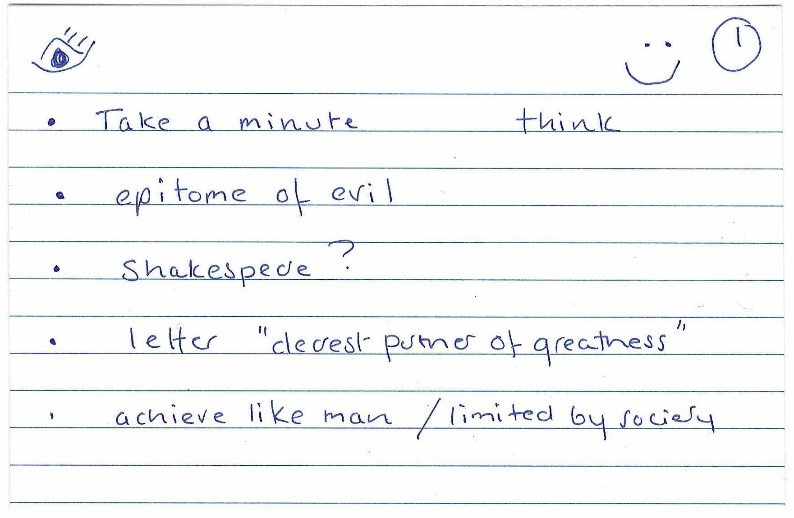 1
• Take a minute think
• epitome of evil
• Shakespeare ?
• letter "dearest partner of greatness"
• achieve like man / limited by society